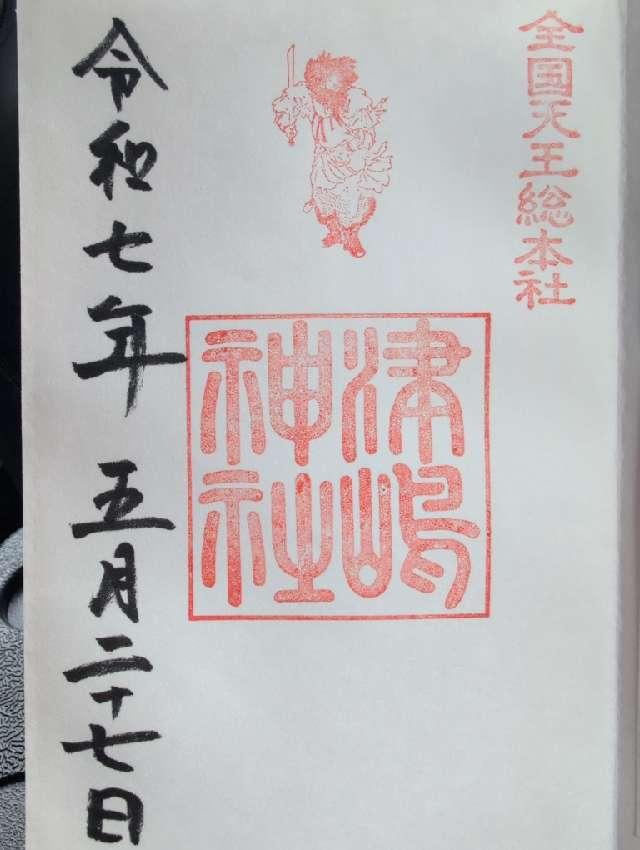 全国天王総本社
津嶋
神社
令和七年五月二十七日